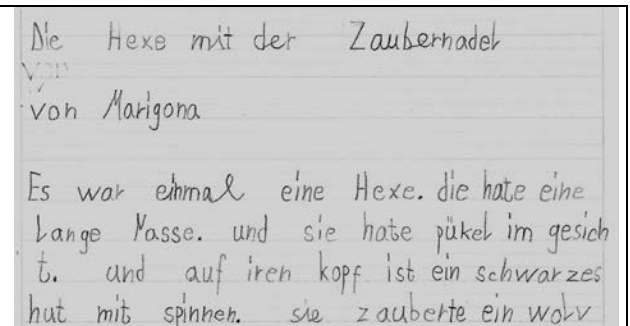 Die Hexe mit der Zaubernadel
von
von Marigona
Es war einmal eine Hexe. die hate eine
Lange Nasse. und sie hate pükel im gesich
t. und auf iren kopf ist ein schwarzes
hut mit spinnen. sie zauberte ein wolv